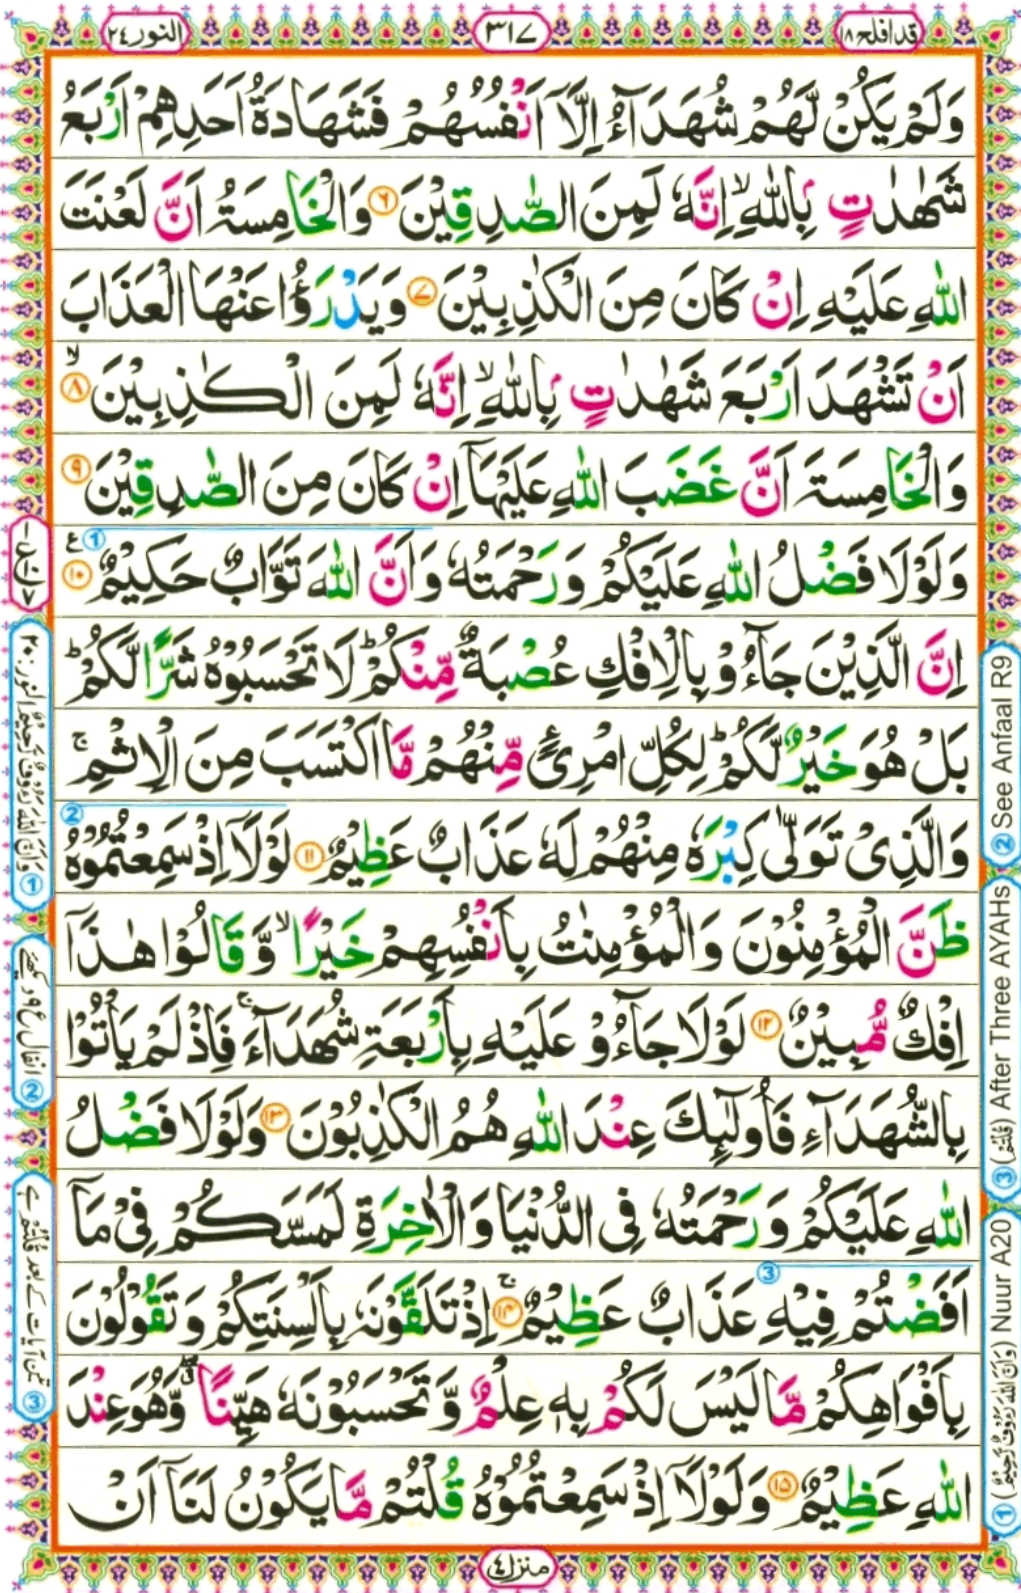 قد افلح ١٨
٣١٧
النور ٢٤
وَلَمْ يَكُنْ لَّهُمْ شُهَدَآءُ اِلَّاۤ اَنْفُسُهُمْ فَشَهَادَةُ اَحَدِهِمْ اَرْبَعُ
شَهٰدٰتٍۭ بِاللّٰهِ ۙ اِنَّهٗ لَمِنَ الصّٰدِقِيْنَ ٦ وَالْخَامِسَةُ اَنَّ لَعْنَتَ
اللّٰهِ عَلَيْهِ اِنْ كَانَ مِنَ الْكٰذِبِيْنَ ٧ وَيَدْرَؤُا عَنْهَا الْعَذَابَ
اَنْ تَشْهَدَ اَرْبَعَ شَهٰدٰتٍۭ بِاللّٰهِ ۙ اِنَّهٗ لَمِنَ الْكٰذِبِيْنَ ۙ ٨
وَالْخَامِسَةَ اَنَّ غَضَبَ اللّٰهِ عَلَيْهَاۤ اِنْ كَانَ مِنَ الصّٰدِقِيْنَ ٩
وَلَوْلَا فَضْلُ اللّٰهِ عَلَيْكُمْ وَرَحْمَتُهٗ وَاَنَّ اللّٰهَ تَوَّابٌ حَكِيْمٌ ١٠ ع 1
اِنَّ الَّذِيْنَ جَآءُوْ بِالْاِفْكِ عُصْبَةٌ مِّنْكُمْ ؕ لَا تَحْسَبُوْهُ شَرًّا لَّكُمْ ؕ
بَلْ هُوَ خَيْرٌ لَّكُمْ ؕ لِكُلِّ امْرِئٍ مِّنْهُمْ مَّا اكْتَسَبَ مِنَ الْاِثْمِ ۚ
وَالَّذِيْ تَوَلّٰى كِبْرَهٗ مِنْهُمْ لَهٗ عَذَابٌ عَظِيْمٌ ١١ لَوْلَاۤ اِذْ سَمِعْتُمُوْهُ 2
ظَنَّ الْمُؤْمِنُوْنَ وَالْمُؤْمِنٰتُ بِاَنْفُسِهِمْ خَيْرًا ۙ وَّقَالُوْا هٰذَاۤ
اِفْكٌ مُّبِيْنٌ ١٢ لَوْلَا جَآءُوْ عَلَيْهِ بِاَرْبَعَةِ شُهَدَآءَ ۚ فَاِذْ لَمْ يَاْتُوْا
بِالشُّهَدَآءِ فَاُولٰٓئِكَ عِنْدَ اللّٰهِ هُمُ الْكٰذِبُوْنَ ١٣ وَلَوْلَا فَضْلُ
اللّٰهِ عَلَيْكُمْ وَرَحْمَتُهٗ فِي الدُّنْيَا وَالْاٰخِرَةِ لَمَسَّكُمْ فِيْ مَاۤ
اَفَضْتُمْ فِيْهِ عَذَابٌ عَظِيْمٌ ۚ ١٤ اِذْ تَلَقَّوْنَهٗ بِاَلْسِنَتِكُمْ وَتَقُوْلُوْنَ 3
بِاَفْوَاهِكُمْ مَّا لَيْسَ لَكُمْ بِهٖ عِلْمٌ وَّتَحْسَبُوْنَهٗ هَيِّنًا ۖ وَّهُوَ عِنْدَ
اللّٰهِ عَظِيْمٌ ١٥ وَلَوْلَاۤ اِذْ سَمِعْتُمُوْهُ قُلْتُمْ مَّا يَكُوْنُ لَنَاۤ اَنْ
منزل ٤
1 وَاَنَّ اللّٰهَ رَءُوْفٌ رَّحِيْمٌ النور: ٢٠
2 انفال ع ٩ دیکھئے
3 تین آیات کے بعد قُلْتُمْ ہے
1 (وَاَنَّ اللّٰهَ رَءُوْفٌ رَّحِيْمٌ) Nuur A20
3 (قُلْتُمْ) After Three AYAHs
2 See Anfaal R9